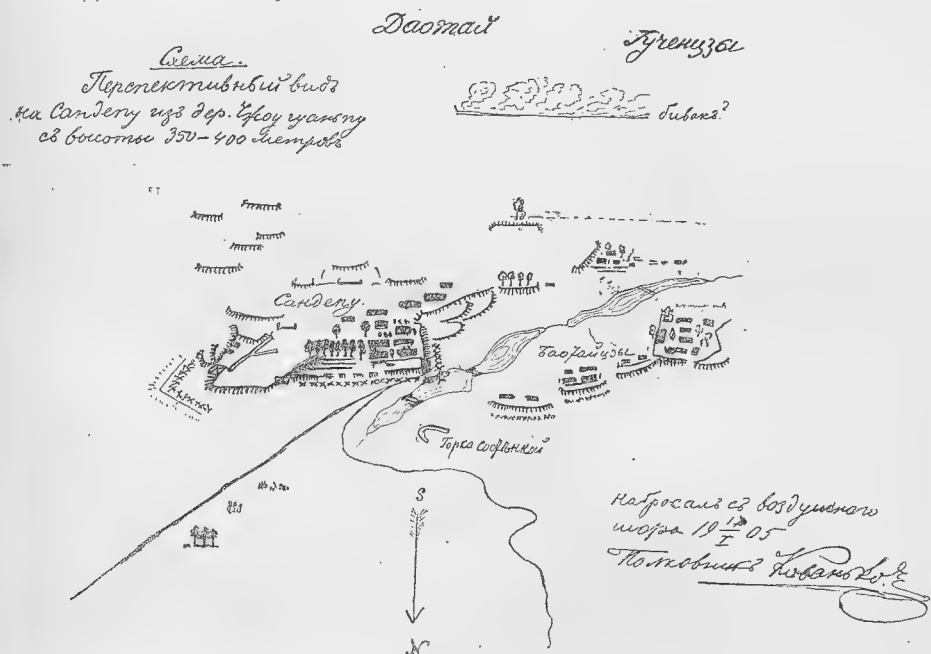 Даотай
Гученцзы
Схема.
Перспективный видъ
на Сандепу изъ дер.
съ высоты 350–400 метровъ
бивакъ?
Сандепу.
Баотайцзы
Горка
S
N
набросалъ съ воздушнаго
шара 19 I 05
Полковникъ Кованько.